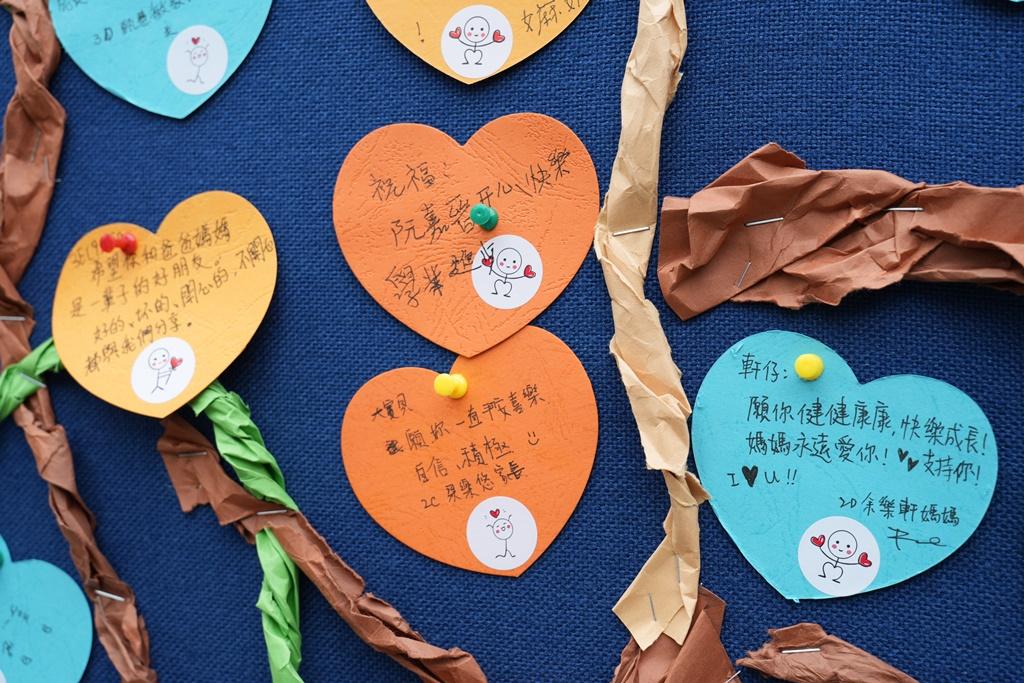 3D
!
祝福:
阮嘉睿開心、快樂
學業進
希望你和爸爸媽媽
是一輩子的好朋友,
好的、坏的、開心的,不開心
都與我們分享。
大寶貝
願你一直平安喜樂
自信、積極
2C 貝樂悠家長
軒仔:
願你健健康康,快樂成長!
媽媽永遠愛你! ♥♥支持你!
I ♥ U!!
2D 余樂軒媽媽
you